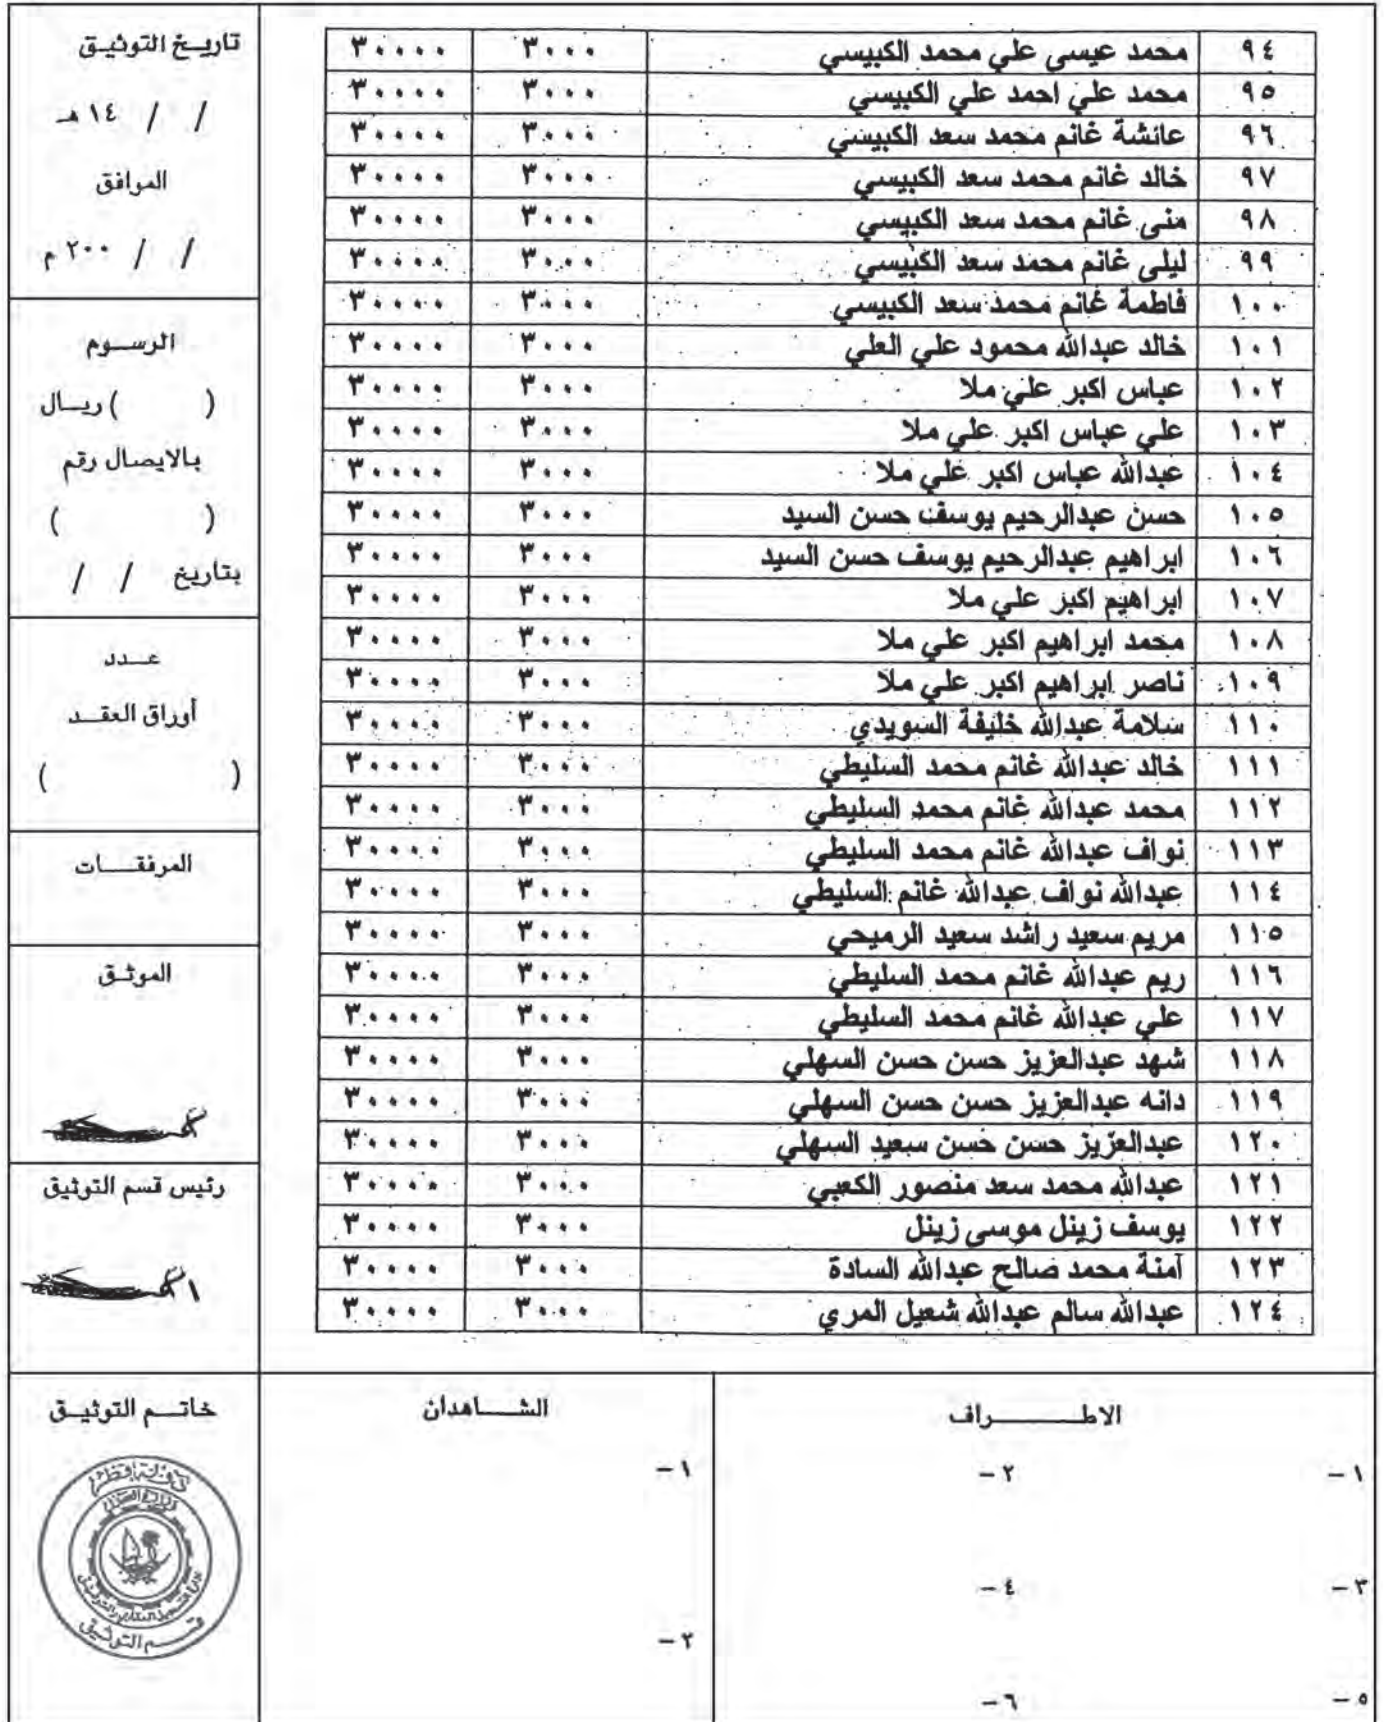 ٩٤ محمد عيسى علي محمد الكبيسي ٣٠٠٠ ٣٠٠٠٠
٩٥ محمد علي احمد علي الكبيسي ٣٠٠٠ ٣٠٠٠٠
٩٦ عائشة غانم محمد سعد الكبيسي ٣٠٠٠ ٣٠٠٠٠
٩٧ خالد غانم محمد سعد الكبيسي ٣٠٠٠ ٣٠٠٠٠
٩٨ منى غانم محمد سعد الكبيسي ٣٠٠٠ ٣٠٠٠٠
٩٩ ليلى غانم محمد سعد الكبيسي ٣٠٠٠ ٣٠٠٠٠
١٠٠ فاطمة غانم محمد سعد الكبيسي ٣٠٠٠ ٣٠٠٠٠
١٠١ خالد عبدالله محمود علي العلي ٣٠٠٠ ٣٠٠٠٠
١٠٢ عباس اكبر علي ملا ٣٠٠٠ ٣٠٠٠٠
١٠٣ علي عباس اكبر علي ملا ٣٠٠٠ ٣٠٠٠٠
١٠٤ عبدالله عباس اكبر علي ملا ٣٠٠٠ ٣٠٠٠٠
١٠٥ حسن عبدالرحيم يوسف حسن السيد ٣٠٠٠ ٣٠٠٠٠
١٠٦ ابراهيم عبدالرحيم يوسف حسن السيد ٣٠٠٠ ٣٠٠٠٠
١٠٧ ابراهيم اكبر علي ملا ٣٠٠٠ ٣٠٠٠٠
١٠٨ محمد ابراهيم اكبر علي ملا ٣٠٠٠ ٣٠٠٠٠
١٠٩ ناصر ابراهيم اكبر علي ملا ٣٠٠٠ ٣٠٠٠٠
١١٠ سلامة عبدالله خليفة السويدي ٣٠٠٠ ٣٠٠٠٠
١١١ خالد عبدالله غانم محمد السليطي ٣٠٠٠ ٣٠٠٠٠
١١٢ محمد عبدالله غانم محمد السليطي ٣٠٠٠ ٣٠٠٠٠
١١٣ نواف عبدالله غانم محمد السليطي ٣٠٠٠ ٣٠٠٠٠
١١٤ عبدالله نواف عبدالله غانم السليطي ٣٠٠٠ ٣٠٠٠٠
١١٥ مريم سعيد راشد سعيد الرميحي ٣٠٠٠ ٣٠٠٠٠
١١٦ ريم عبدالله غانم محمد السليطي ٣٠٠٠ ٣٠٠٠٠
١١٧ علي عبدالله غانم محمد السليطي ٣٠٠٠ ٣٠٠٠٠
١١٨ شهد عبدالعزيز حسن حسن السهلي ٣٠٠٠ ٣٠٠٠٠
١١٩ دانه عبدالعزيز حسن حسن السهلي ٣٠٠٠ ٣٠٠٠٠
١٢٠ عبدالعزيز حسن حسن سعيد السهلي ٣٠٠٠ ٣٠٠٠٠
١٢١ عبدالله محمد سعد منصور الكعبي ٣٠٠٠ ٣٠٠٠٠
١٢٢ يوسف زينل موسى زينل ٣٠٠٠ ٣٠٠٠٠
١٢٣ آمنة محمد صالح عبدالله السادة ٣٠٠٠ ٣٠٠٠٠
١٢٤ عبدالله سالم عبدالله شعيل المري ٣٠٠٠ ٣٠٠٠٠
تاريخ التوثيق
/ / ١٤ هـ
الموافق
/ / ٢٠٠ م
الرسوم
( ) ريال
بالايصال رقم
( )
بتاريخ / /
عدد
أوراق العقد
( )
المرفقات
الموثق
رئيس قسم التوثيق
الاطراف
١ - ٢ -
٣ - ٤ -
٥ - ٦ -
الشاهدان
١ -
٢ -
خاتم التوثيق
دولة قطر
وزارة العدل
قسم التوثيق